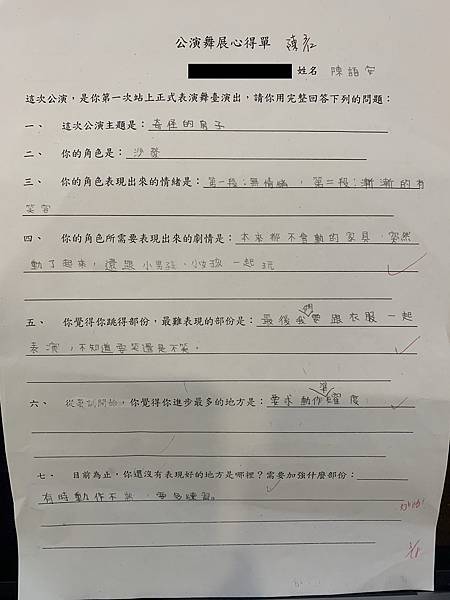 公演舞展心得單
姓名 陳語安
這次公演，是你第一次站上正式表演舞臺演出，請你用完整回答下列的問題：
一、 這次公演主題是：奇怪的房子
二、 你的角色是：沙發
三、 你的角色表現出來的情緒是：第一段：無情緒，第二段：漸漸的有
笑容
四、 你的角色所需要表現出來的劇情是：本來都不會動的家具，突然
動了起來，還跟小男孩、小女孩一起玩
五、 你覺得你跳得部份，最難表現的部份是：最後我們要跟衣服一起
表演，不知道要笑還是不笑。
六、 從考試開始，你覺得你進步最多的地方是：要求動作準確度
七、 目前為止，你還沒有表現好的地方是哪裡？需要加強什麼部份：
有時動作不熟，要多練習。